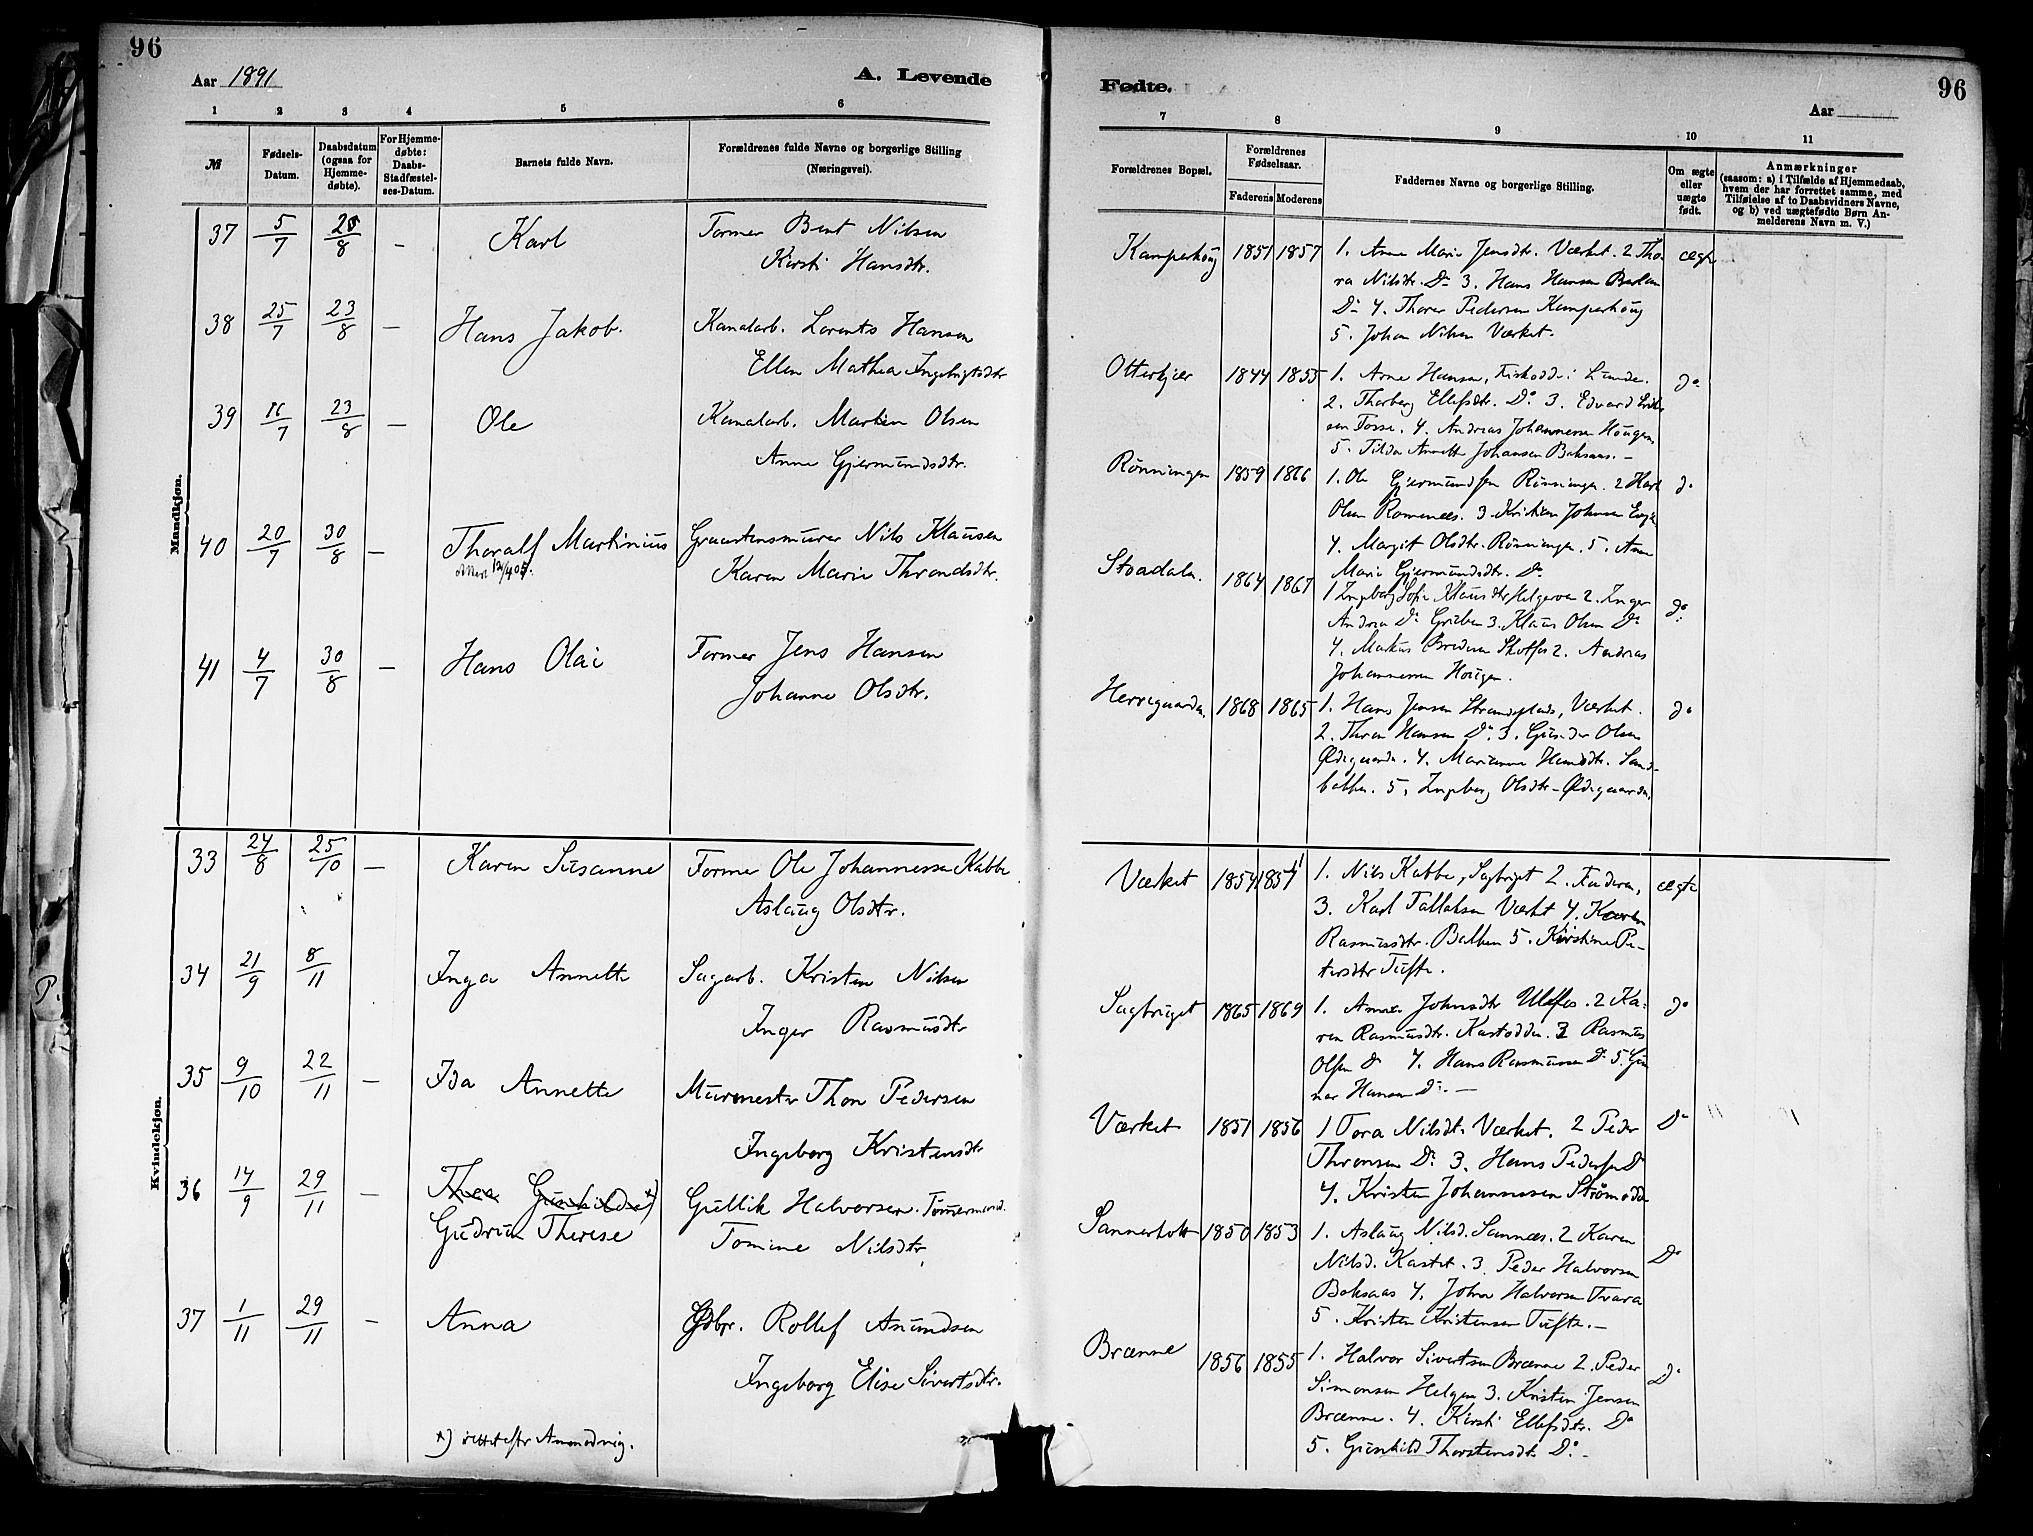 96
Aar 1891
A. Levende
1 2 3 4 5 6
№
Fødsels-Datum.
Daabsdatum (ogsaa for Hjemme-døbte).
For Hjemme-døbte: Daabs-Stadfæstel-ses-Datum.
Barnets fulde Navn.
Forældrenes fulde Navne og borgerlige Stilling (Næringsvei).
Mandkjøn.
37 5/7 /8 – Karl Former Bent Nilsen
Kirsti Hansdtr.
38 25/7 23/8 – Hans Jakob. Kanalarb. Lorents Hansen
Ellen Mathea Ingebrigtsdtr
39 16/7 23/8 – Ole Kanalarb. Martin Olsen
Anne Gjermundsdtr.
40 20/7 30/8 – Thoralf Martinius Graastensmurer Nils Klausen
Attest 12/4 05. Karen Marie Throndsdtr.
41 4/7 30/8 – Hans Olai Former Jens Hansen
Johanne Olsdtr.
Kvindekjøn.
33 24/8 25/10 – Karen Susanne Former Ole Johannessen Kabbe
Aslaug Olsdtr.
34 21/9 8/11 Inga Annette Sagarb. Kristen Nilsen
Inger Rasmusdtr
35 9/10 22/11 – Ida Annette Murmester Thon Pedersen
Ingeborg Kristensdtr
36 14/9 29/11 – Thea Gunhilda *) Gullik Halvorsen. Tømmermand.
Gudrun Therese Tomine Nilsdtr,
37 1/11 29/11 – Anna Gdbr. Rollef Amundsen
Ingeborg Elise Sivertsdtr.
*) rettet eftr Anmodning.
96
Fødte.
Aar
7 8 9 10 11
Forældrenes Bopæl.
Forældrenes Fødselsaar.
Faderens Moderens
Faddernes Navne og borgerlige Stilling.
Om ægte eller uægte født.
Anmærkninger
(saasom: a) i Tilfælde af Hjemmedaab,
hvem der har forrettet samme, med
Tilføielse af to Daabsvidners Navne,
og b) ved uægtefødte Børn An-
melderens Navn m. V.)
Kamperhoug 1851 1857 1. Anne Marie Jensdtr. Værket. 2 Tho- ægte
ra Nilsdtr. Do 3. Hans Hansen
Do 4. Thorer Pedersen Kamperhoug
5. Johan Nilsen Værket.
Otterkjær 1844 1855 1. Arne Hansen, i Lunde. do
2. Thorberg Ellefsdtr. Do 3. Edvard
sen Fosse. 4. Andreas Johannesen Hougen
5. Tilda Annette Johansen Boksaas. –
Rønningen 1859 1866 1. Ole Gjermundsen Rønningen. 2 do
Olsen Romnæs. 3. Kristian Johnsen
4. Margit Olsdtr. Rønningen. 5. Anne
Marie Gjermundsdtr. Do
Stoadalen. 1864 1867 1 Ingeborg Sofie Klausdtr Helgeroa 2. Inger do
Andrea Do 3. Klaus Olsen Do
4. Markus 2. Andreas
Johannessen Hougen.
Herregaarden. 1868 1865 1. Hans Jensen Strandplads, Værket. do
2. Thron Hansen Do. 3. Gunder Olsen
Ødegaarden. 4. Marianne Hansdtr. Sand-
bakken. 5. Ingeborg Olsdtr – Ødegaarden.
Værket 1854 1857 1. Nils Kabbe, Sagbruget 2. Faderen, ægte
3. Karl Tallaksen Værket 4. Karen
Rasmusdtr. Bakken 5. Kirstine Pe-
tersdtr Tufte.
Sagbruget 1865 1869 1. Anne Johnsdtr Ulefos. 2 Ka- do
ren Rasmusdtr. Kastodden. 3 Rasmus
Olsen Do 4. Hans Rasmussen Do 5. Gun
nar Hansen Do. –
Værket 1851 1856 1 Tora Nilsdt. Værket. 2 Peder Do
Thronsen Do 3. Hans Pedersen Do
4. Kristen Johannessen Strømodden
Sannerholt 1850 1853 1. Aslaug Nilsd. Sannes. 2 Karen Do
Nilsd. Kastet. 3. Peder Halvorsen
Boksaas 4. John Halvorsen Tvara
5. Kristen Kristensen Tufte. –
Brænne 1856 1855 1. Halvor Sivertsen Brænne 2. Peder Do
Simonsen Helgen 3. Kristen Jensen
Brænne. 4. Kirsti Ellefsdtr. Do
5. Gunhild Thorstensdt. Do –